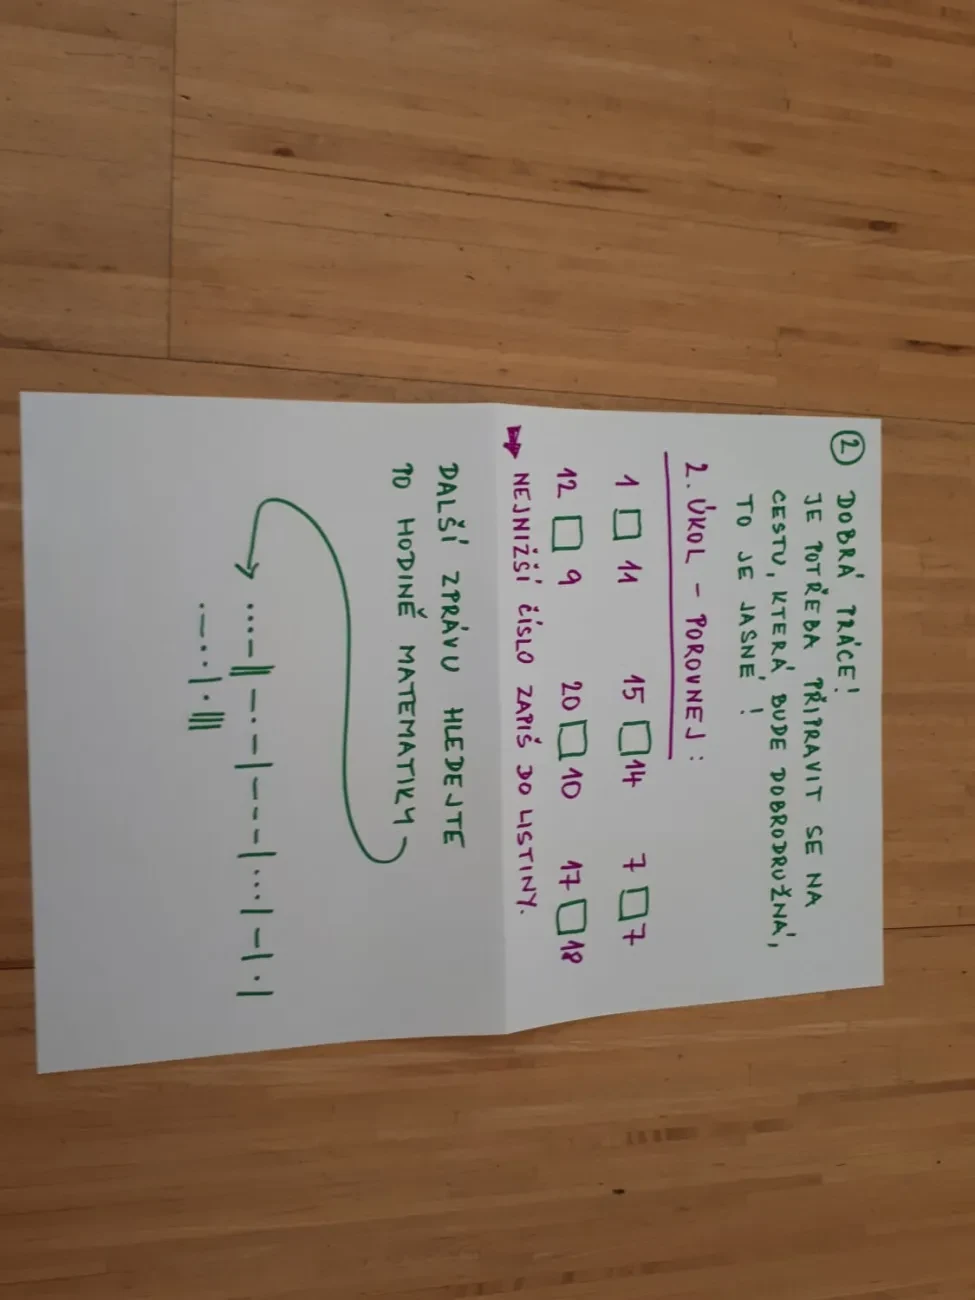 ② DOBRÁ PRÁCE!
JE POTŘEBA PŘIPRAVIT SE NA
CESTU, KTERÁ BUDE DOBRODRUŽNÁ,
TO JE JASNÉ!
2. ÚKOL - POROVNEJ:
1 □ 11 15 □ 14 7 □ 7
12 □ 9 20 □ 10 17 □ 18
→ NEJNIŽŠÍ ČÍSLO ZAPIŠ DO LISTINY.
DALŠÍ ZPRÁVU HLEDEJTE
PO HODINĚ MATEMATIKY
...-||-.-|---|...|-|.|
.-..|.|||